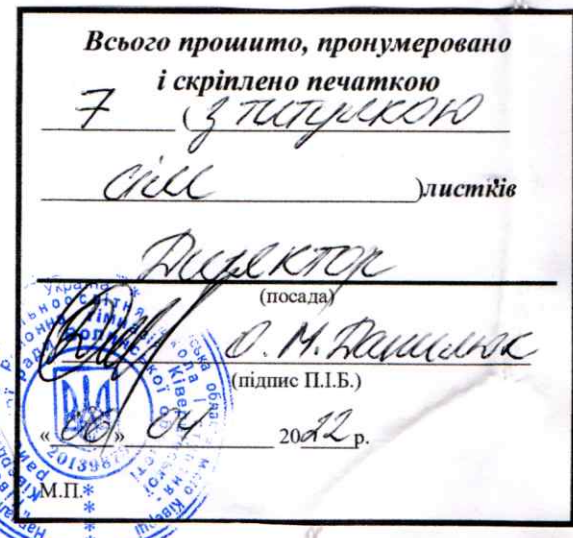 Всього прошито, пронумеровано
і скріплено печаткою
7 (з титулкою
сім )листків
Директор
(посада)
О. М. Данилюк
(підпис П.І.Б.)
«06» 04 2022 р.
М.П.
Україна